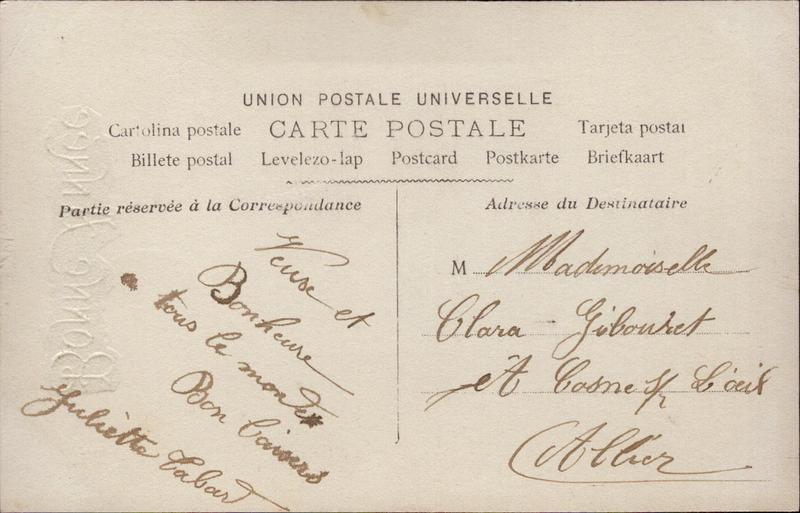 UNION POSTALE UNIVERSELLE
Cartolina postale CARTE POSTALE Tarjeta postal
Billete postal Levelezo-lap Postcard Postkarte Briefkaart
Partie réservée à la Correspondance
Adresse du Destinataire
et
Bonheure
a tous le monde
Bon
Juliette Tabard
M Mademoiselle
Clara Gibouret
A Cosne s/ L'œil
Allier